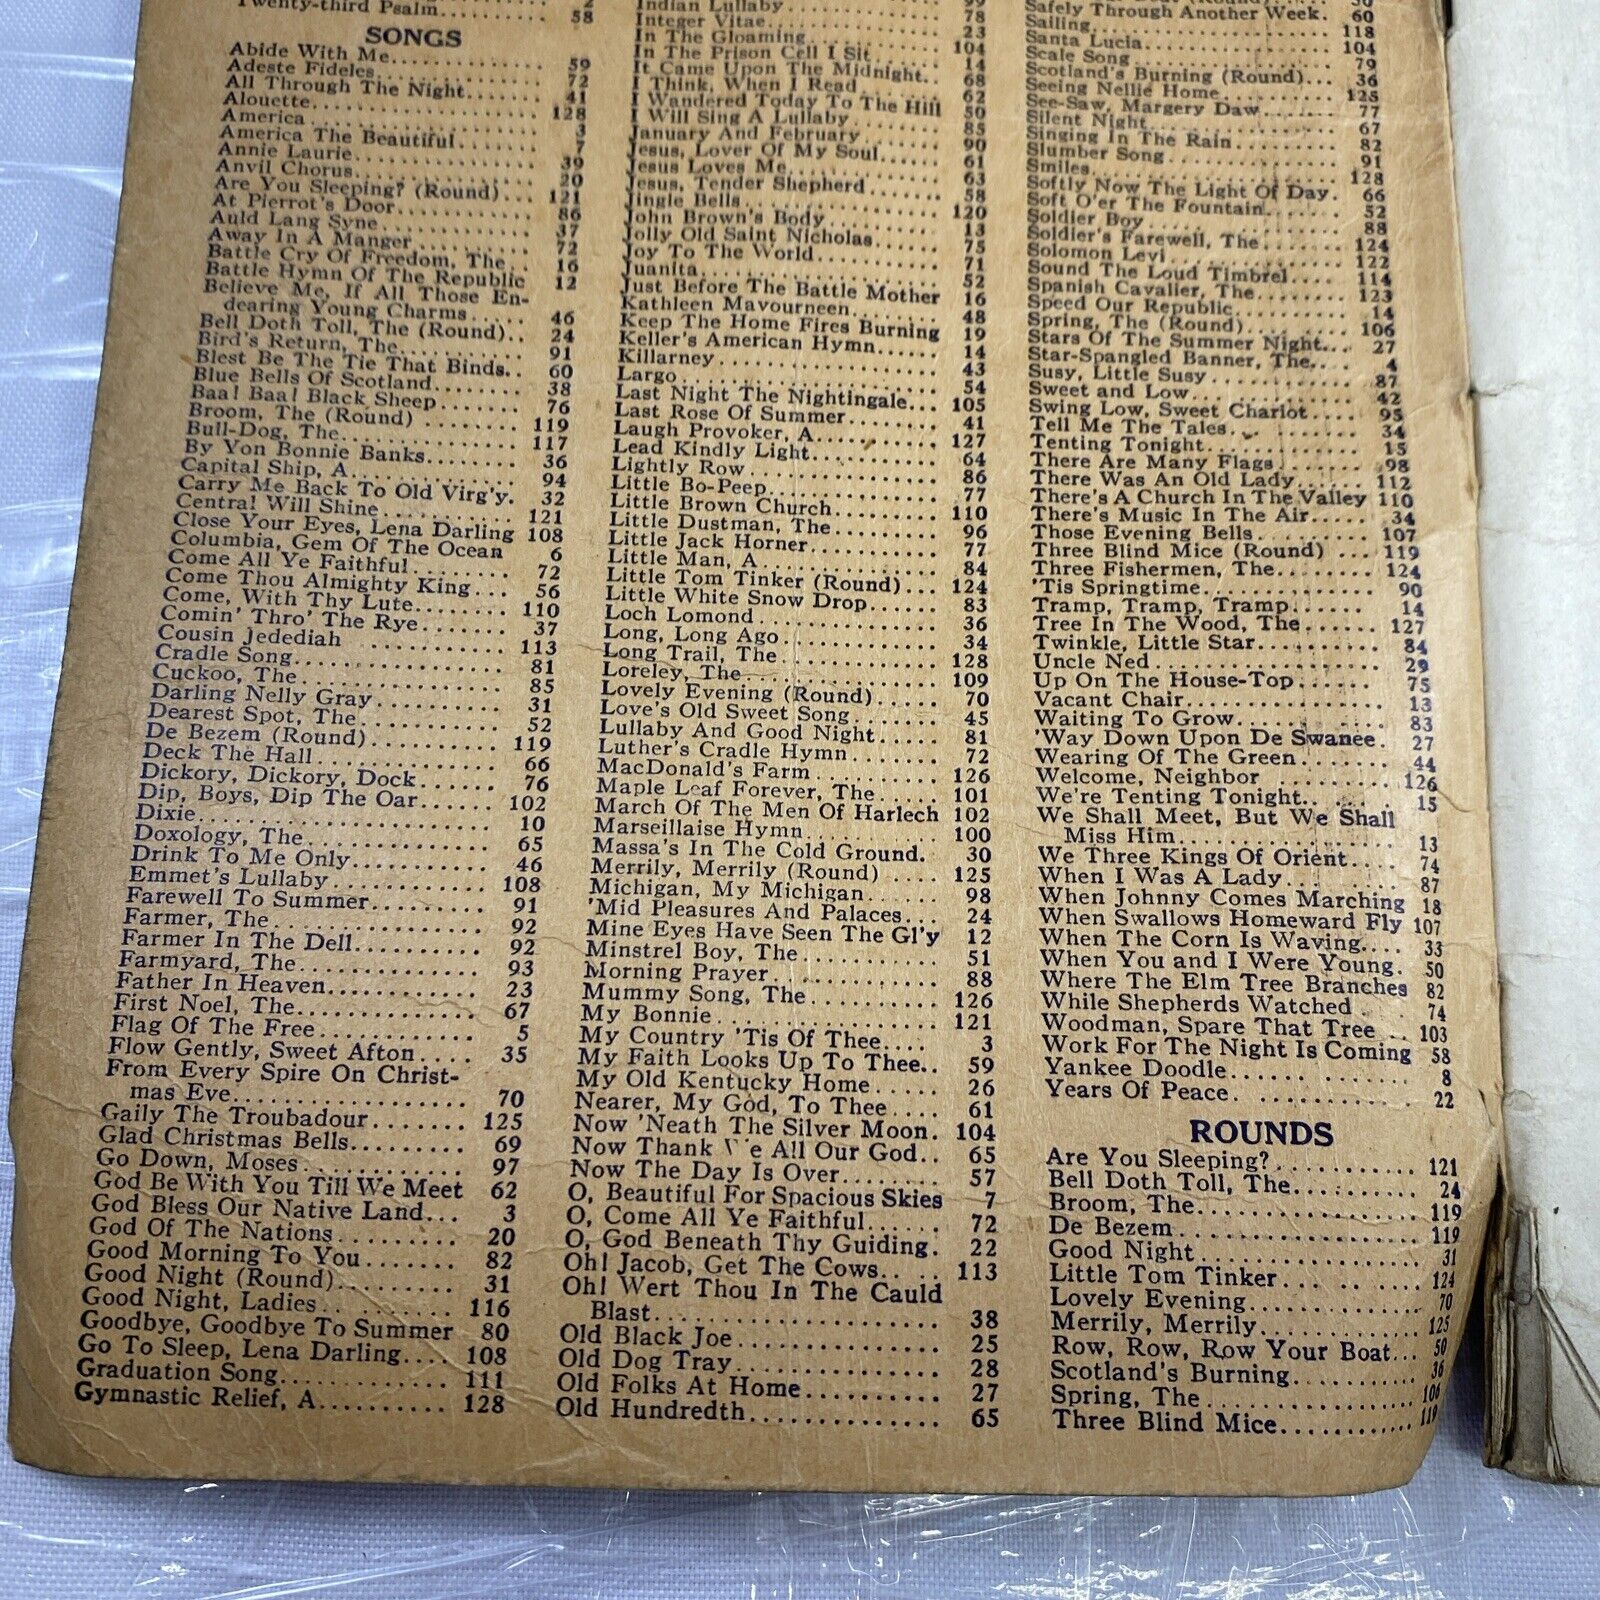 Twenty-third Psalm 58
SONGS
Abide With Me 59
Adeste Fideles 72
All Through The Night 41
Alouette 128
America 3
America The Beautiful 7
Annie Laurie 39
Anvil Chorus 20
Are You Sleeping? (Round) 121
At Pierrot's Door 86
Auld Lang Syne 37
Away In A Manger 72
Battle Cry Of Freedom, The 16
Battle Hymn Of The Republic 12
Believe Me, If All Those En-
dearing Young Charms 46
Bell Doth Toll, The (Round) 24
Bird's Return, The 91
Blest Be The Tie That Binds 60
Blue Bells Of Scotland 38
Baa! Baa! Black Sheep 76
Broom, The (Round) 119
Bull-Dog, The 117
By Yon Bonnie Banks 36
Capital Ship, A 94
Carry Me Back To Old Virg'y. 32
Central Will Shine 121
Close Your Eyes, Lena Darling 108
Columbia, Gem Of The Ocean 6
Come All Ye Faithful 72
Come Thou Almighty King 56
Come, With Thy Lute 110
Comin' Thro' The Rye 37
Cousin Jedediah 113
Cradle Song 81
Cuckoo, The 85
Darling Nelly Gray 31
Dearest Spot, The 52
De Bezem (Round) 119
Deck The Hall 66
Dickory, Dickory, Dock 76
Dip, Boys, Dip The Oar 102
Dixie 10
Doxology, The 65
Drink To Me Only 46
Emmet's Lullaby 108
Farewell To Summer 91
Farmer, The 92
Farmer In The Dell 92
Farmyard, The 93
Father In Heaven 23
First Noel, The 67
Flag Of The Free 5
Flow Gently, Sweet Afton 35
From Every Spire On Christ-
mas Eve 70
Gaily The Troubadour 125
Glad Christmas Bells 69
Go Down, Moses 97
God Be With You Till We Meet 62
God Bless Our Native Land 3
God Of The Nations 20
Good Morning To You 82
Good Night (Round) 31
Good Night, Ladies 116
Goodbye, Goodbye To Summer 80
Go To Sleep, Lena Darling 108
Graduation Song 111
Gymnastic Relief, A 128
Indian Lullaby 99
Integer Vitae 78
In The Gloaming 23
In The Prison Cell I Sit 104
It Came Upon The Midnight 14
I Think, When I Read 68
I Wandered Today To The Hill 62
I Will Sing A Lullaby 50
January And February 85
Jesus, Lover Of My Soul 90
Jesus Loves Me 61
Jesus, Tender Shepherd 63
Jingle Bells 58
John Brown's Body 120
Jolly Old Saint Nicholas 13
Joy To The World 75
Juanita 71
Just Before The Battle Mother 52
Kathleen Mavourneen 16
Keep The Home Fires Burning 48
Keller's American Hymn 19
Killarney 14
Largo 43
Last Night The Nightingale 54
Last Rose Of Summer 105
Laugh Provoker, A 41
Lead Kindly Light 127
Lightly Row 64
Little Bo-Peep 86
Little Brown Church 77
Little Dustman, The 110
Little Jack Horner 96
Little Man, A 77
Little Tom Tinker (Round) 84
Little White Snow Drop 124
Loch Lomond 83
Long, Long Ago 36
Long Trail, The 34
Loreley, The 128
Lovely Evening (Round) 109
Love's Old Sweet Song 70
Lullaby And Good Night 45
Luther's Cradle Hymn 81
MacDonald's Farm 72
Maple Leaf Forever, The 126
March Of The Men Of Harlech 101
Marseillaise Hymn 102
Massa's In The Cold Ground. 100
Merrily, Merrily (Round) 30
Michigan, My Michigan 125
'Mid Pleasures And Palaces 98
Mine Eyes Have Seen The Gl'y 24
Minstrel Boy, The 12
Morning Prayer 51
Mummy Song, The 88
My Bonnie 126
My Country 'Tis Of Thee 121
My Faith Looks Up To Thee 3
My Old Kentucky Home 59
Nearer, My God, To Thee 26
Now 'Neath The Silver Moon. 61
Now Thank We All Our God 104
Now The Day Is Over 65
O, Beautiful For Spacious Skies 57
O, Come All Ye Faithful 7
O, God Beneath Thy Guiding. 72
Oh! Jacob, Get The Cows 22
Oh! Wert Thou In The Cauld 113
Blast 38
Old Black Joe 25
Old Dog Tray 28
Old Folks At Home 27
Old Hundredth 65
Safely Through Another Week. 60
Sailing 118
Santa Lucia 104
Scale Song 79
Scotland's Burning (Round) 36
Seeing Nellie Home 125
See-Saw, Margery Daw 77
Silent Night 67
Singing In The Rain 82
Slumber Song 91
Smiles 128
Softly Now The Light Of Day. 66
Soft O'er The Fountain 52
Soldier Boy 88
Soldier's Farewell, The 124
Solomon Levi 122
Sound The Loud Timbrel 114
Spanish Cavalier, The 123
Speed Our Republic 14
Spring, The (Round) 106
Stars Of The Summer Night 27
Star-Spangled Banner, The 4
Susy, Little Susy 87
Sweet and Low 42
Swing Low, Sweet Chariot 95
Tell Me The Tales 34
Tenting Tonight 15
There Are Many Flags 98
There Was An Old Lady 112
There's A Church In The Valley 110
There's Music In The Air 34
Those Evening Bells 107
Three Blind Mice (Round) 119
Three Fishermen, The 124
'Tis Springtime 90
Tramp, Tramp, Tramp 14
Tree In The Wood, The 127
Twinkle, Little Star 84
Uncle Ned 29
Up On The House-Top 75
Vacant Chair 13
Waiting To Grow 83
'Way Down Upon De Swanee. 27
Wearing Of The Green 44
Welcome, Neighbor 126
We're Tenting Tonight 15
We Shall Meet, But We Shall
Miss Him 13
We Three Kings Of Orient 74
When I Was A Lady 87
When Johnny Comes Marching 18
When Swallows Homeward Fly 107
When The Corn Is Waving 33
When You and I Were Young. 50
Where The Elm Tree Branches 82
While Shepherds Watched 74
Woodman, Spare That Tree 103
Work For The Night Is Coming 58
Yankee Doodle 8
Years Of Peace 22
ROUNDS
Are You Sleeping? 121
Bell Doth Toll, The 24
Broom, The 119
De Bezem 119
Good Night 31
Little Tom Tinker 124
Lovely Evening 70
Merrily, Merrily 125
Row, Row, Row Your Boat 50
Scotland's Burning 36
Spring, The 106
Three Blind Mice 119